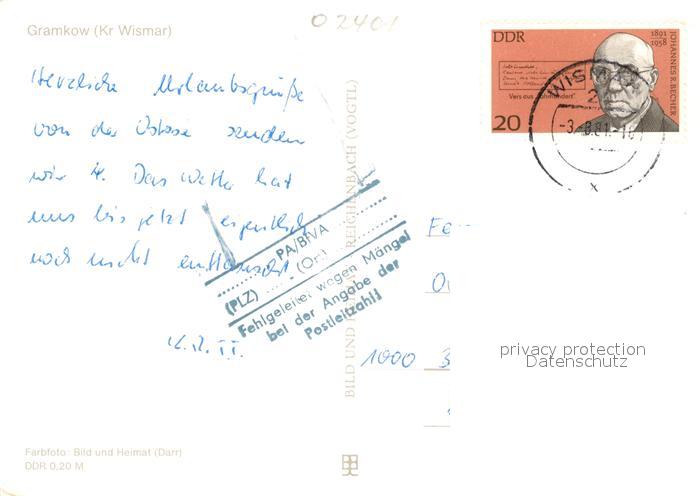 02401
Gramkow (Kr Wismar)
Herzliche Urlaubsgrüße
von der Ostsee senden
wir 4. Das Wetter hat
uns bis jetzt eigentlich
noch nicht enttäuscht.
DDR
1891
1958
JOHANNES R. BECHER
Vers aus "Jahrhundert"
20
WISMAR
2
-3.-8.81.-18
x
PA/BfVA
(PLZ) ...... (Ort)
Fehlgeleitet wegen Mängel
bei der Angabe der
Postleitzahl!
BILD UND HEIMAT REICHENBACH (VOGTL)
1000
privacy protection
Datenschutz
Farbfoto: Bild und Heimat (Darr)
DDR 0,20 M